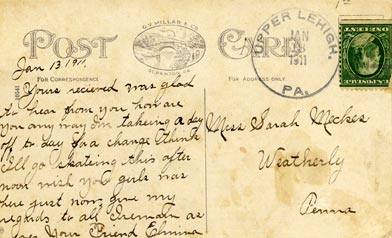 POST CARD
G.V. MILLAR & CO.
SCRANTON PA.
FOR CORRESPONDENCE
FOR ADDRESS ONLY.
UPPER LEHIGH.
JAN
1911
PA.
ONE CENT
Jan 13 1911,
Yours recieved was glad
to hear from you how are
you any way Im takeing a day
off to day for a change I think
Ill go skating this after
noon wish you girls was
here just now, give my
regards to all Iremain as
Your Friend Elmina
Miss Sarah Meckes
Weatherly
Penna